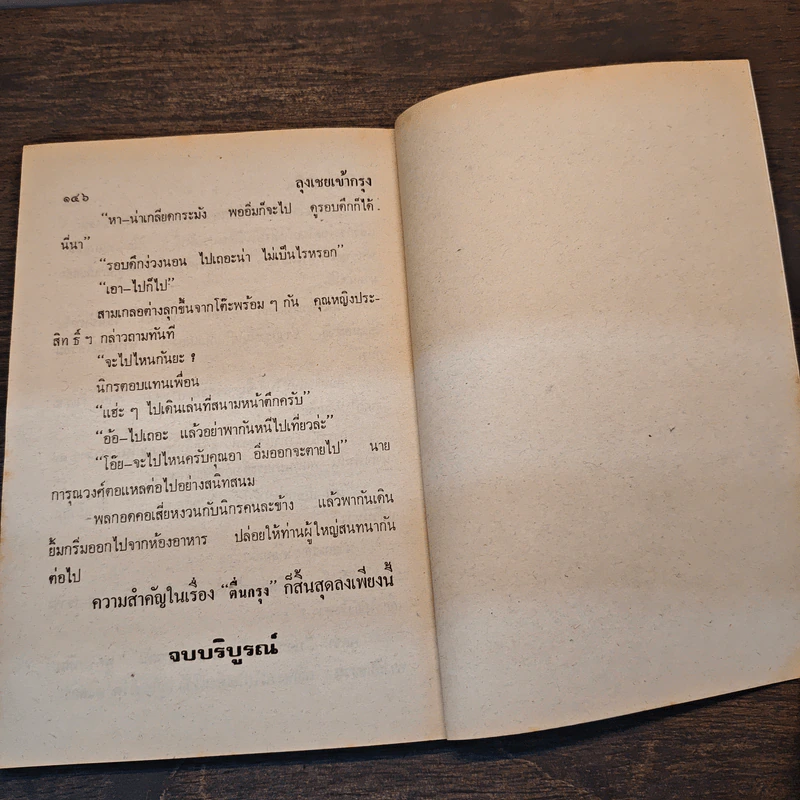 ๑๔๖ ลุงเชยเข้ากรุง
“หา–น่าเกลียดกระมัง พออิ่มก็จะไป ดูรอบดึกก็ได้
นี่นา”
“รอบดึกง่วงนอน ไปเถอะน่า ไม่เป็นไรหรอก”
“เอา–ไปก็ไป”
สามเกลอต่างลุกขึ้นจากโต๊ะพร้อม ๆ กัน คุณหญิงประ-
สิทธิ์ ฯ กล่าวถามทันที
“จะไปไหนกันยะ ?
นิกรตอบแทนเพื่อน
“แฮ่ะ ๆ ไปเดินเล่นที่สนามหน้าตึกครับ”
“อ้อ–ไปเถอะ แล้วอย่าพากันหนีไปเที่ยวล่ะ”
“โอ๊ย–จะไปไหนครับคุณอา อิ่มออกจะตายไป” นาย
การุณวงศ์ตอแหลต่อไปอย่างสนิทสนม
พลกอดคอเสี่ยหงวนกับนิกรคนละข้าง แล้วพากันเดิน
ยิ้มกริ่มออกไปจากห้องอาหาร ปล่อยให้ท่านผู้ใหญ่สนทนากัน
ต่อไป
ความสำคัญในเรื่อง “ตื่นกรุง” ก็สิ้นสุดลงเพียงนี้
จบบริบูรณ์